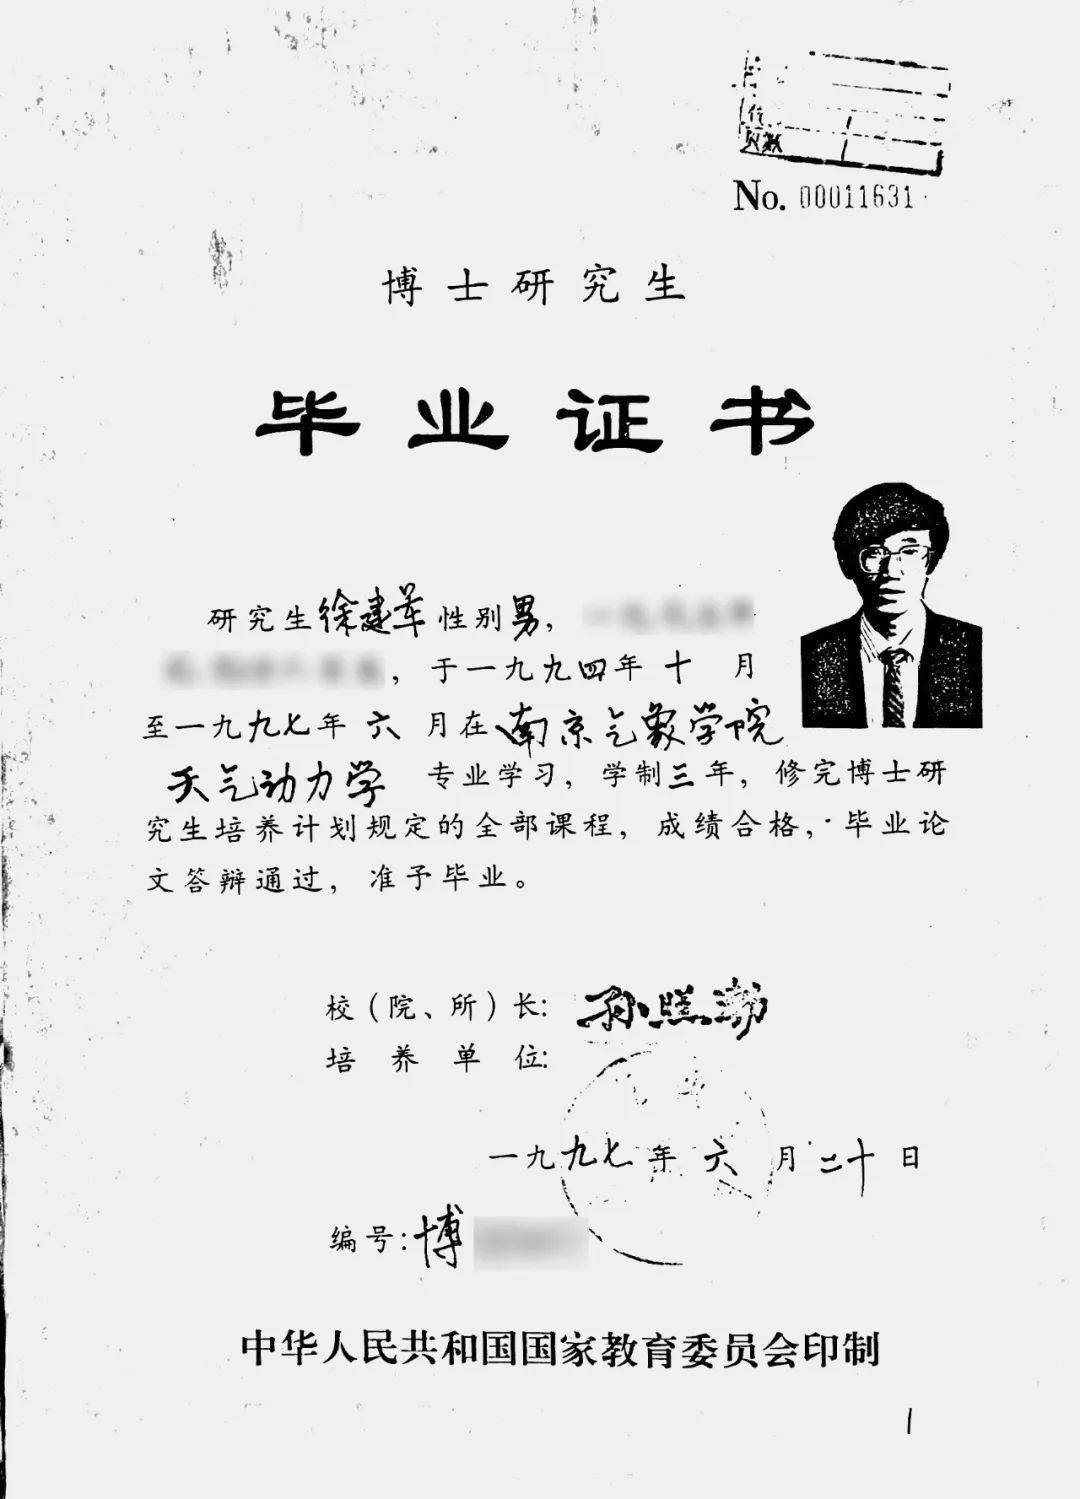 位
页数 1
No. 00011631
博士研究生
毕业证书
研究生徐建军性别男，
，于一九九四年十月
至一九九七年六月在南京气象学院
天气动力学 专业学习，学制三年，修完博士研
究生培养计划规定的全部课程，成绩合格，毕业论
文答辩通过，准予毕业。
校（院、所）长：孙照渤
培养单位：
一九九七年六月二十日
编号：博
中华人民共和国国家教育委员会印制
1